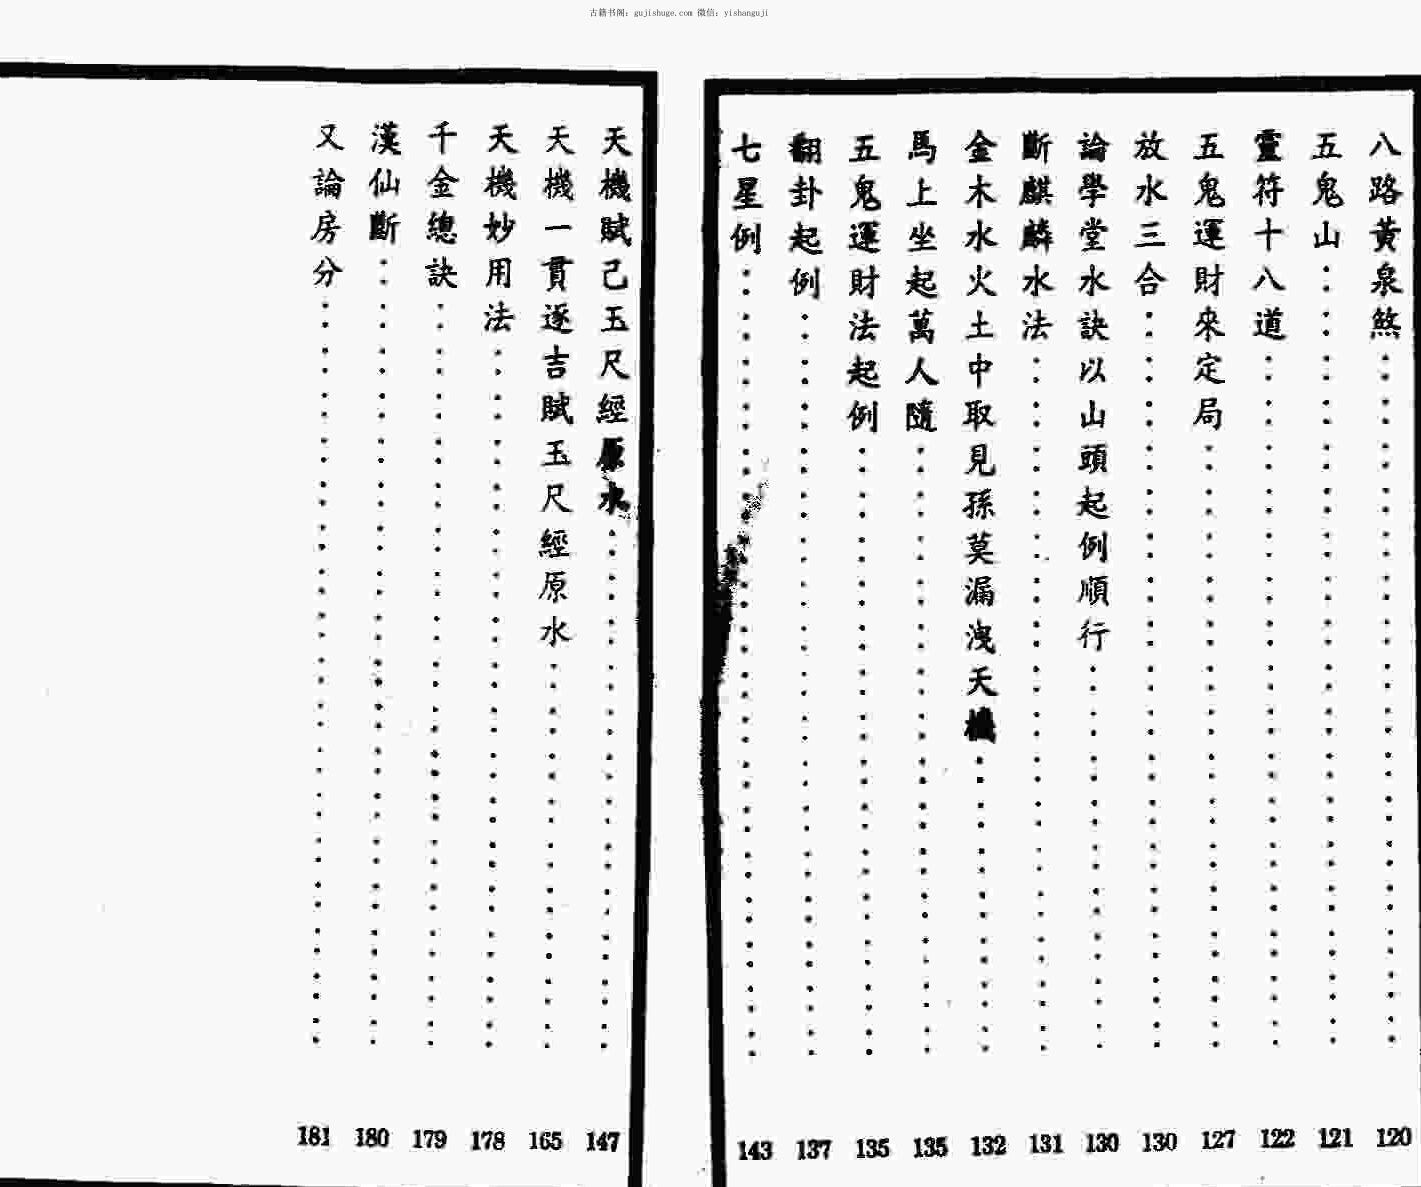 古籍书阁：gujishuge.com 微信：yishanguji
八路黃泉煞 120
五鬼山 121
靈符十八道 122
五鬼運財來定局 127
放水三合 130
論學堂水訣以山頭起例順行 130
斷麒麟水法 131
金木水火土中取見孫莫漏洩天機 132
馬上坐起萬人隨 135
五鬼運財法起例 135
翻卦起例 137
七星例 143
天機賦己玉尺經原水 147
天機一貫逐吉賦玉尺經原水 165
天機妙用法 178
千金總訣 179
漢仙斷 180
又論房分 181